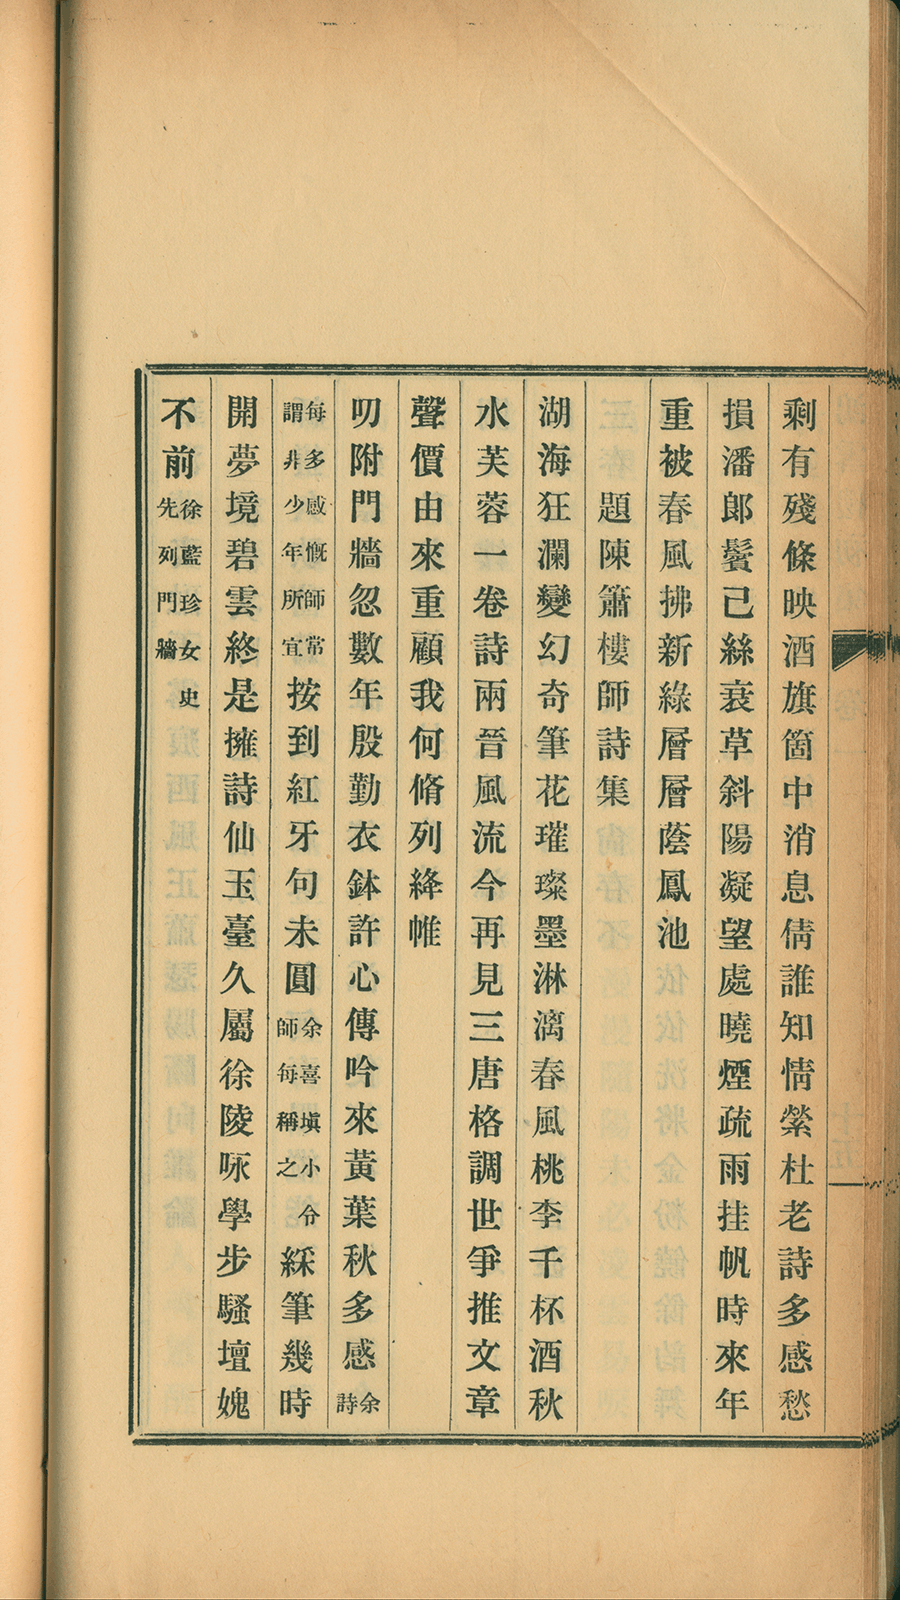 剩有殘條映酒旗箇中消息倩誰知情縈杜老詩多感愁
損潘郎鬢已絲衰草斜陽凝望處曉煙疏雨挂帆時來年
重被春風拂新綠層層蔭鳳池
題陳簫樓師詩集
湖海狂瀾變幻奇筆花璀璨墨淋漓春風桃李千杯酒秋
水芙蓉一卷詩兩晉風流今再見三唐格調世爭推文章
聲價由來重顧我何脩列絳帷
叨附門牆忽數年殷勤衣鉢許心傳吟來黃葉秋多感余詩
每多感慨師常謂非少年所宜按到紅牙句未圓余喜塡小令師每稱之綵筆幾時
開夢境碧雲終是擁詩仙玉臺久屬徐陵咏學步騷壇媿
不前徐藍珍女史先列門牆